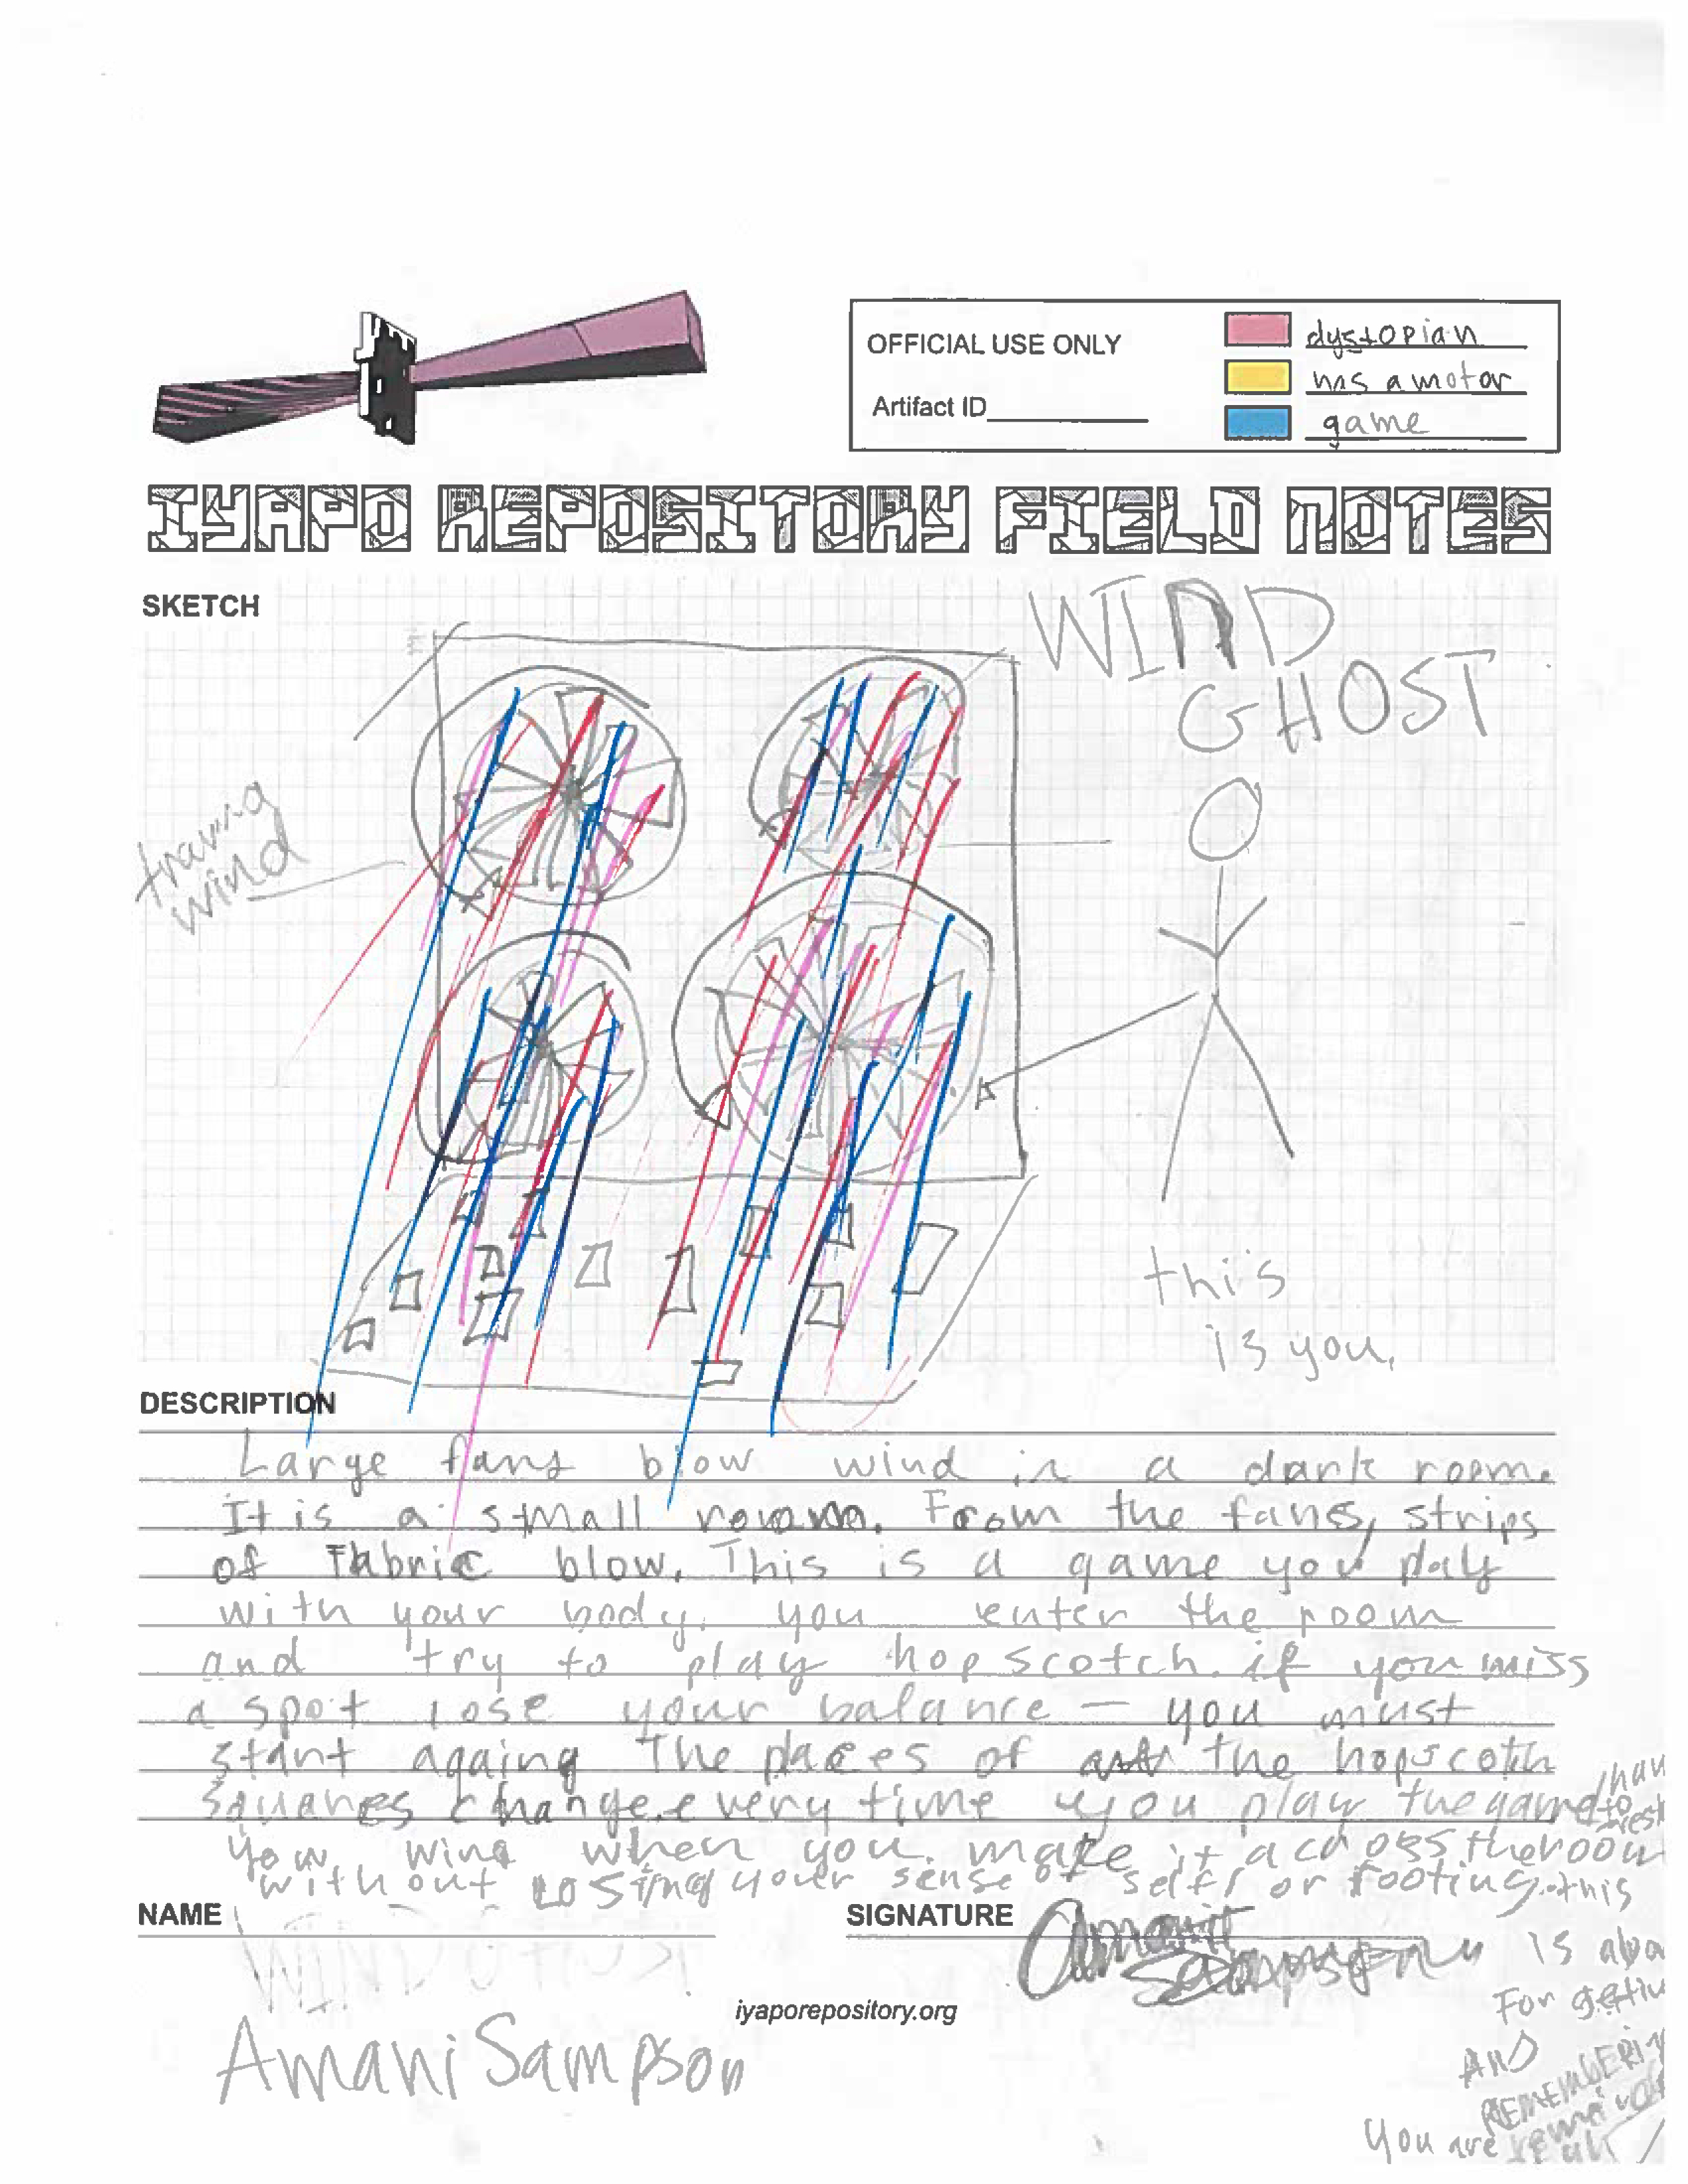 OFFICIAL USE ONLY
Artifact ID
dystopian
has a motor
game
IYAPO REPOSITORY FIELD NOTES
SKETCH
WIND
GHOST
wind
this
is you.
DESCRIPTION
Large fans blow wind in a dark room.
It is a small room. From the fans, strips
of Fabric blow. This is a game you play
with your body. you enter the room
and try to play hopscotch. if you miss
a spot lose your balance — you must
start again The places of the hopscoth
squares change every time you play the game
You wing when you make it across the room
without losing your sense of self, or footing. this
is
For
AND
You are
NAME
WIND GHOST
Amani Sampson
SIGNATURE
Amani
Sampson
iyaporepository.org